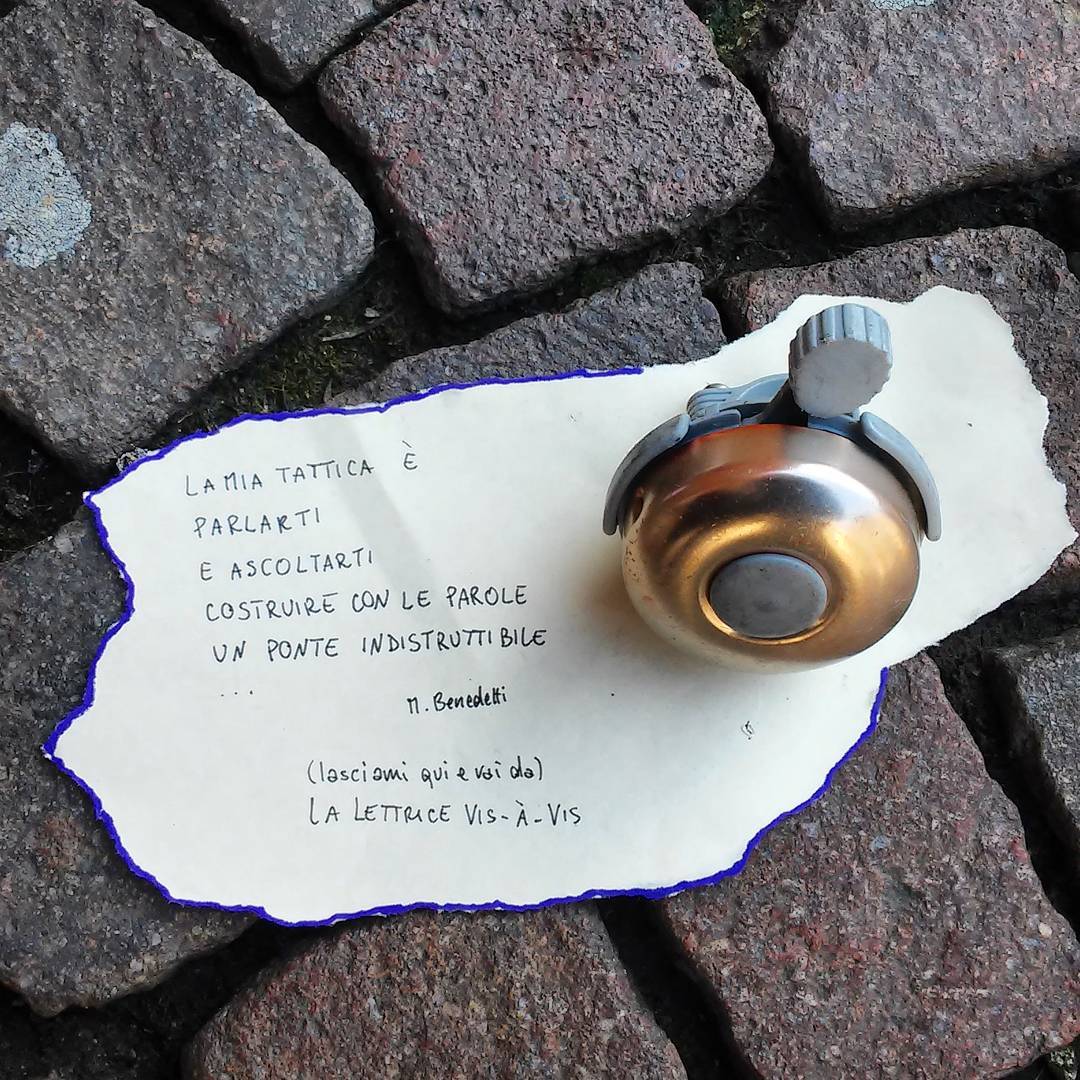 LA MIA TATTICA È
PARLARTI
E ASCOLTARTI
COSTRUIRE CON LE PAROLE
UN PONTE INDISTRUTTIBILE
...
M. Benedetti
(lasciami qui e vai da)
LA LETTRICE VIS-À-VIS